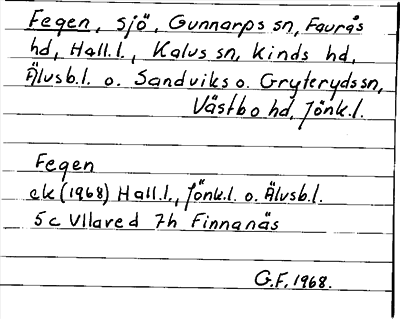 Fegen, sjö, Gunnarps sn, Faurås
hd, Hall.l., Kalvs sn, Kinds hd,
Älvsb.l. o. Sandviks o. Gryteryds sn,
Västbo hd, Jönk.l.
Fegen
ek (1968) Hall.l., Jönk.l. o. Älvsb.l.
5c Ullared 7h Finnanäs
G.F. 1968.